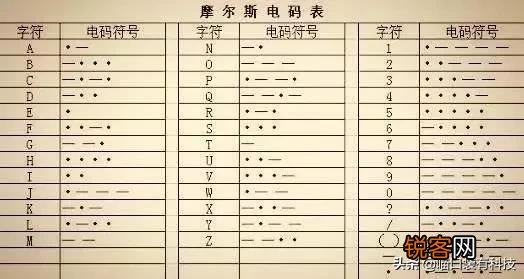 摩尔斯电码表
字符 电码符号 字符 电码符号 字符 电码符号
A •— N —• 1 •————
B —••• O ——— 2 ••———
C —•—• P •——• 3 •••——
D —•• Q ——•— 4 ••••—
E • R •—• 5 •••••
F ••—• S ••• 6 —••••
G ——• T — 7 ——•••
H •••• U ••— 8 ———••
I •• V •••— 9 ————•
J •——— W •—— 0 —————
K —•— X —••— ? ••——••
L •—•• Y —•—— / —••—•
M —— Z ——•• ()
锐客网
头条